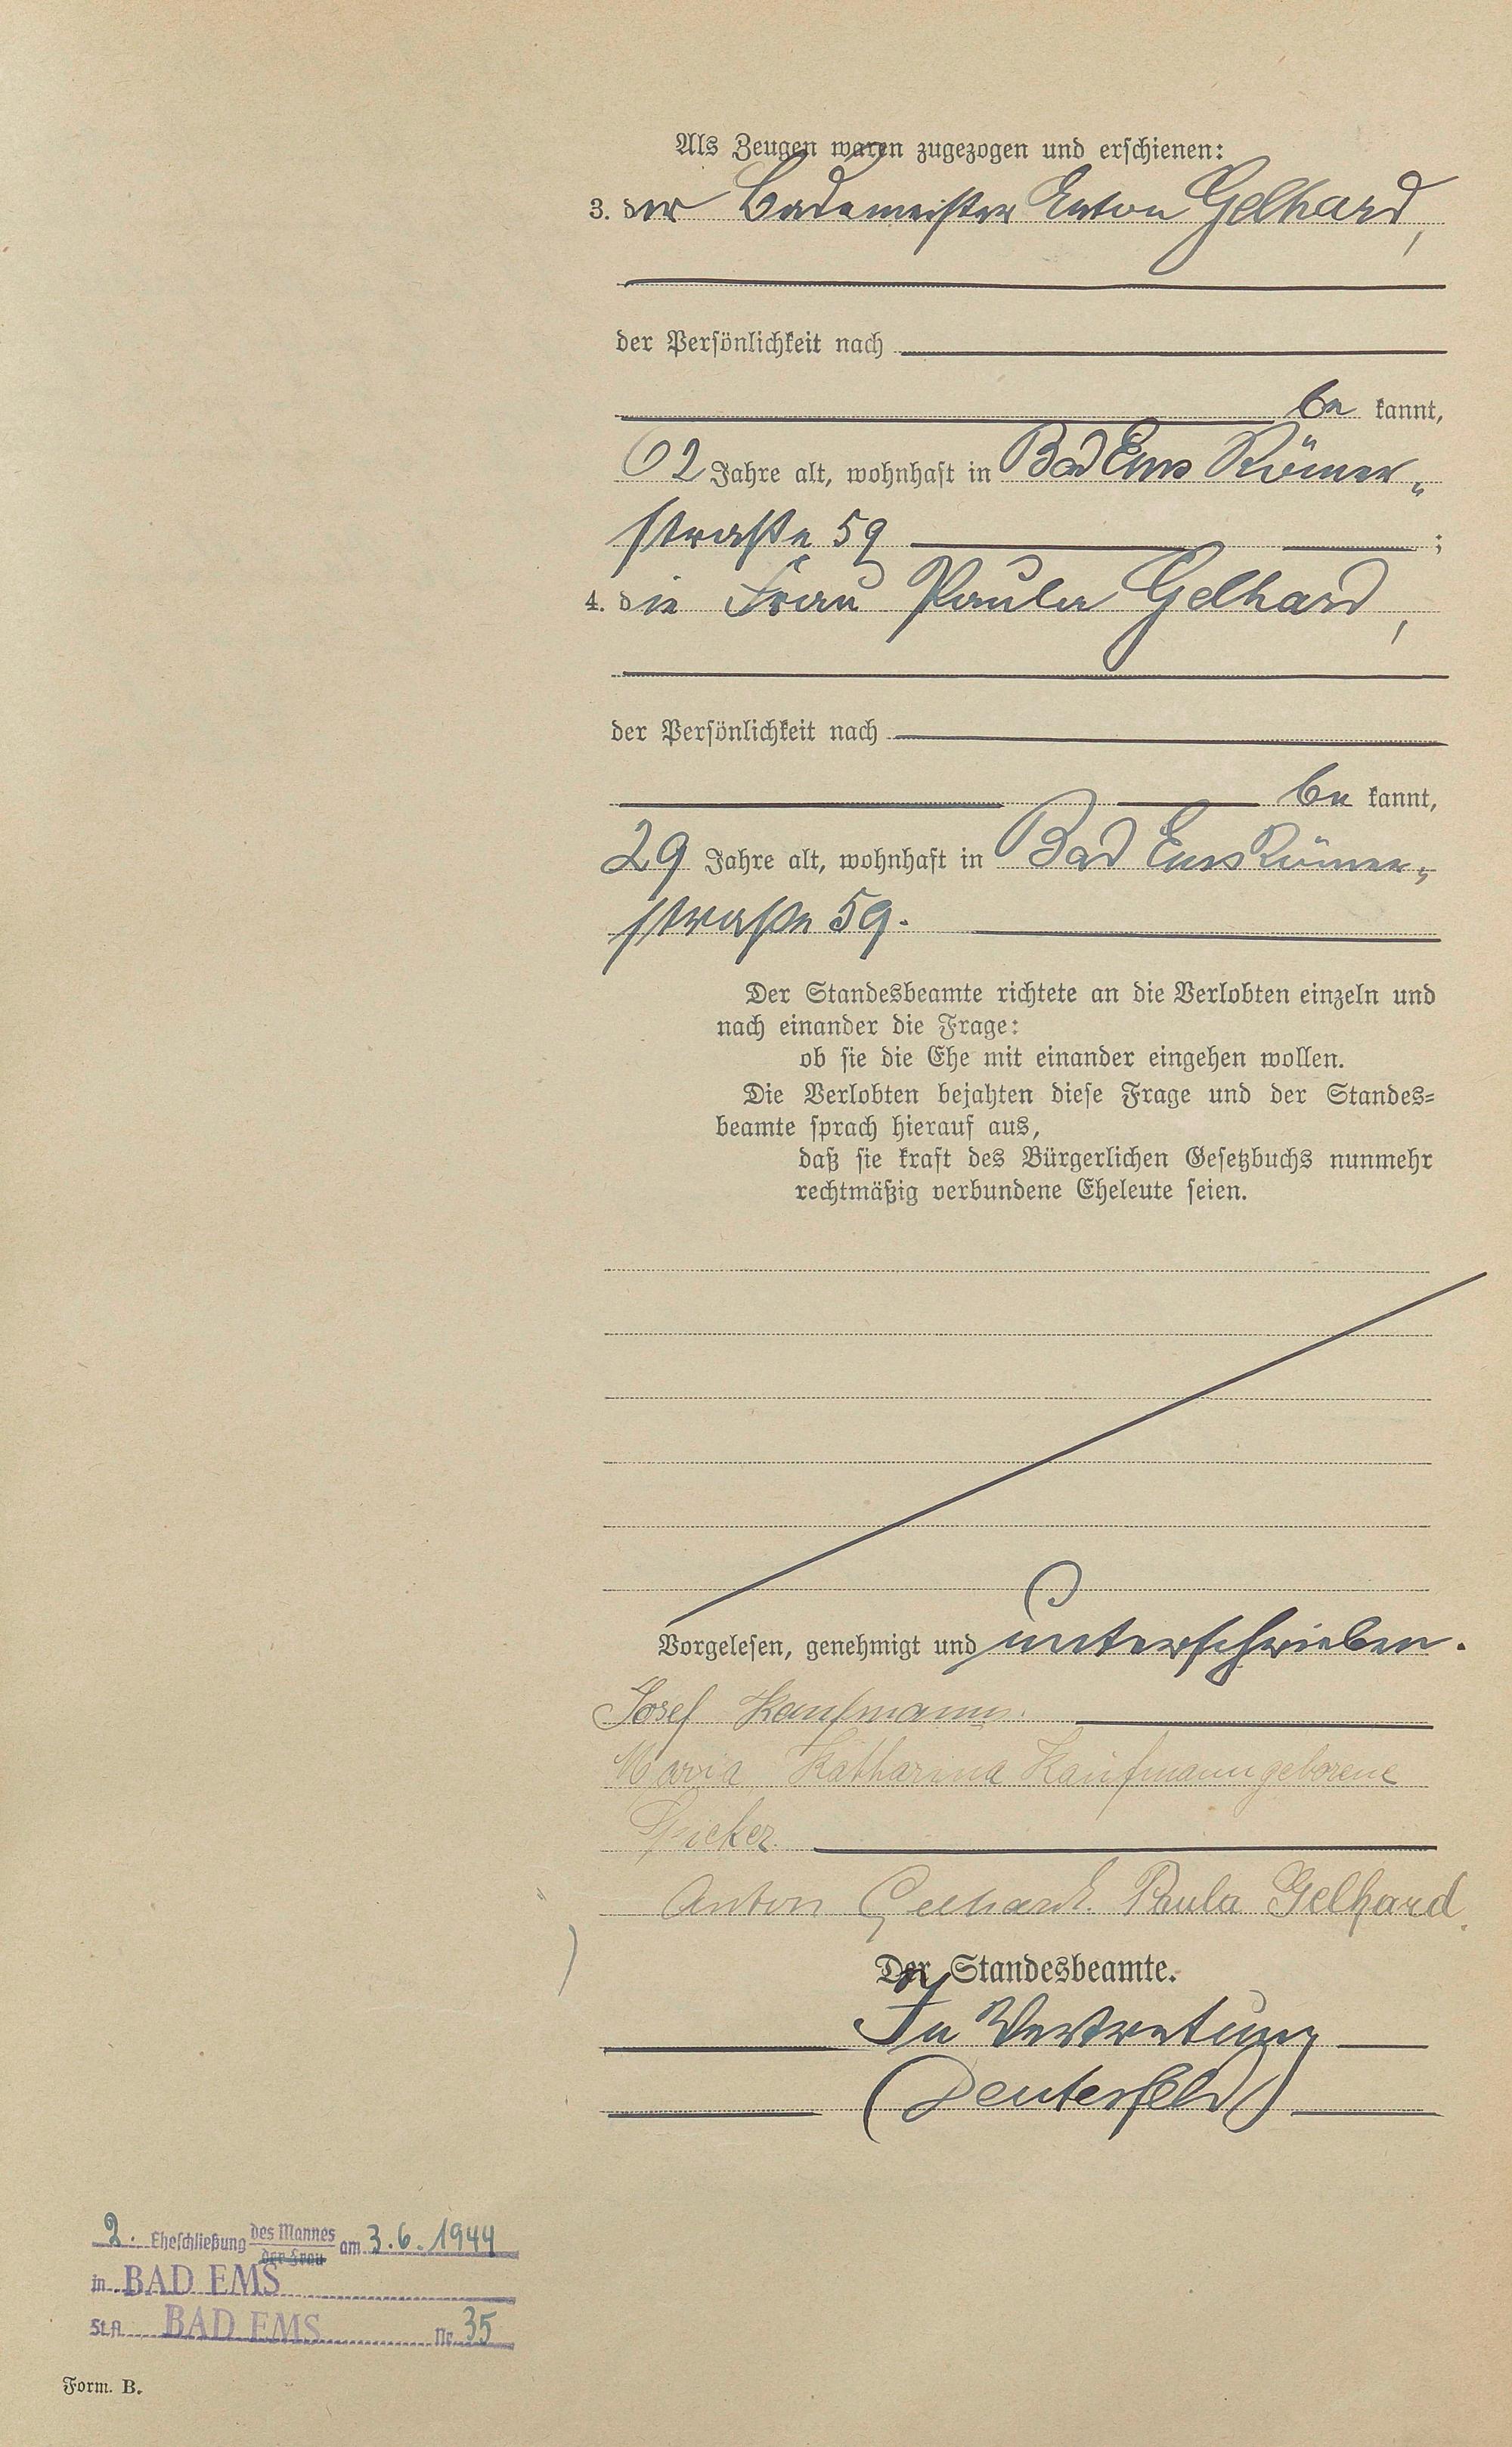 Als Zeugen waren zugezogen und erschienen:
3. der Bademeister Anton Gelhard,
der Persönlichkeit nach
be kannt,
62 Jahre alt, wohnhaft in Bad Ems Römer„
straße 59 ;
4. die Frau Paula Gelhard,
der Persönlichkeit nach
be kannt,
29 Jahre alt, wohnhaft in Bad Ems Römer„
straße 59.
Der Standesbeamte richtete an die Verlobten einzeln und
nach einander die Frage:
ob sie die Ehe mit einander eingehen wollen.
Die Verlobten bejahten diese Frage und der Standes=
beamte sprach hierauf aus,
daß sie kraft des Bürgerlichen Gesetzbuchs nunmehr
rechtmäßig verbundene Eheleute seien.
Vorgelesen, genehmigt und unterschrieben.
Josef Kaufmann.
Maria Katharina Kaufmann geborene
Spicker.
Anton Gelhard. Paula Gelhard.
Der Standesbeamte.
In Vertretung
(Deuterfeld)
2. Eheschließung des Mannes der Frau am 3.6.1944
in BAD EMS
St.A BAD EMS Nr. 35
Form. B.